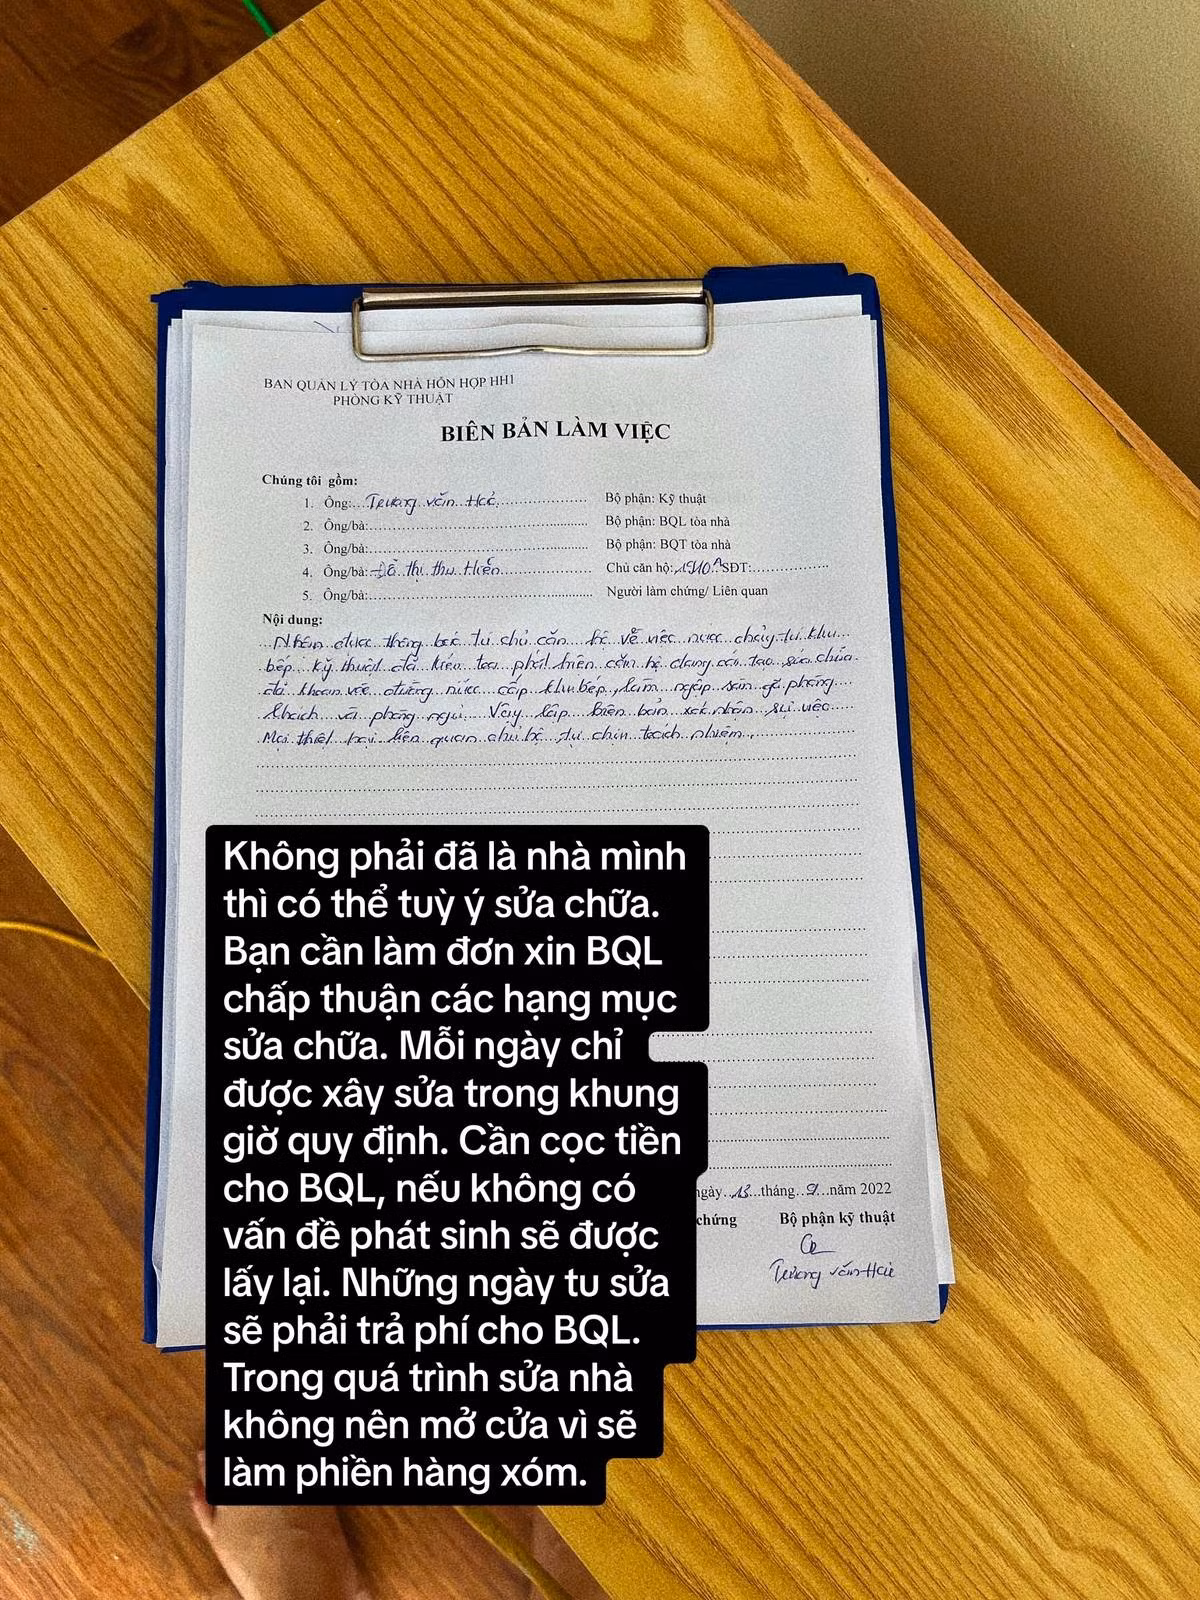 BAN QUẢN LÝ TÒA NHÀ HỖN HỢP HH1
PHÒNG KỸ THUẬT
BIÊN BẢN LÀM VIỆC
Chúng tôi gồm:
1. Ông:....Trương văn Hải............... Bộ phận: Kỹ thuật
2. Ông/bà:................................ Bộ phận: BQL tòa nhà
3. Ông/bà:................................ Bộ phận: BQT tòa nhà
4. Ông/bà: Đỗ thị thu Hiền............... Chủ căn hộ: 1910A SĐT:..................
5. Ông/bà:................................ Người làm chứng/ Liên quan
Nội dung:
Nhận được thông báo từ chủ căn hộ về việc nước chảy từ khu
bếp. Kỹ thuật đã kiểm tra phát hiện căn hộ đang cải tạo, sửa chữa
đã khoan vào đường nước cấp khu bếp, làm ngập sàn gỗ phòng
khách và phòng ngủ. Vậy lập biên bản xác nhận sự việc
Mọi thiệt hại liên quan chủ hộ tự chịu trách nhiệm.
Không phải đã là nhà mình
thì có thể tuỳ ý sửa chữa.
Bạn cần làm đơn xin BQL
chấp thuận các hạng mục
sửa chữa. Mỗi ngày chỉ
được xây sửa trong khung
giờ quy định. Cần cọc tiền
cho BQL, nếu không có
vấn đề phát sinh sẽ được
lấy lại. Những ngày tu sửa
sẽ phải trả phí cho BQL.
Trong quá trình sửa nhà
không nên mở cửa vì sẽ
làm phiền hàng xóm.
ngày..13...tháng..9...năm 2022
chứng Bộ phận kỹ thuật
Trương văn Hải